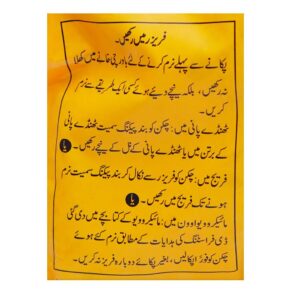 فریزر میں رکھیں۔
پکانے سے پہلے نرم کرنے کے لئے باورچی خانے میں کھلا
نہ رکھیں، بلکہ نیچے دیئے ہوئے کسی ایک طریقے سے نرم
کریں۔
ٹھنڈے پانی میں: چکن کو بند پیکنگ سمیت ٹھنڈے پانی
کے برتن میں یا ٹھنڈے پانی کے نل کے نیچے رکھیں۔ یا
فریج میں: چکن کو فریزر سے نکال کر بند پیکنگ سمیت نرم
ہونے تک فریج میں رکھیں۔ یا
مائیکروویو اوون میں: مائیکروویو کے کتابچے میں دی گئی
ڈی فراسٹنگ کی ہدایات کے مطابق نرم کئے ہوئے
چکن کو فوراً پکالیں، بغیر پکائے دوبارہ فریز نہ کریں۔